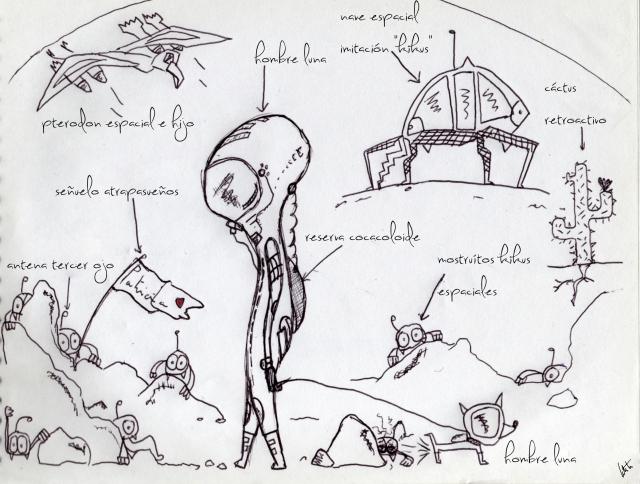 nave espacial
imitación "kikus"
hombre luna
cáctus
retroactivo
pterodon espacial e hijo
señuelo atrapasueños
reserva cocacoloide
antena tercer ojo
mostruitos kikus
espaciales
hombre luna